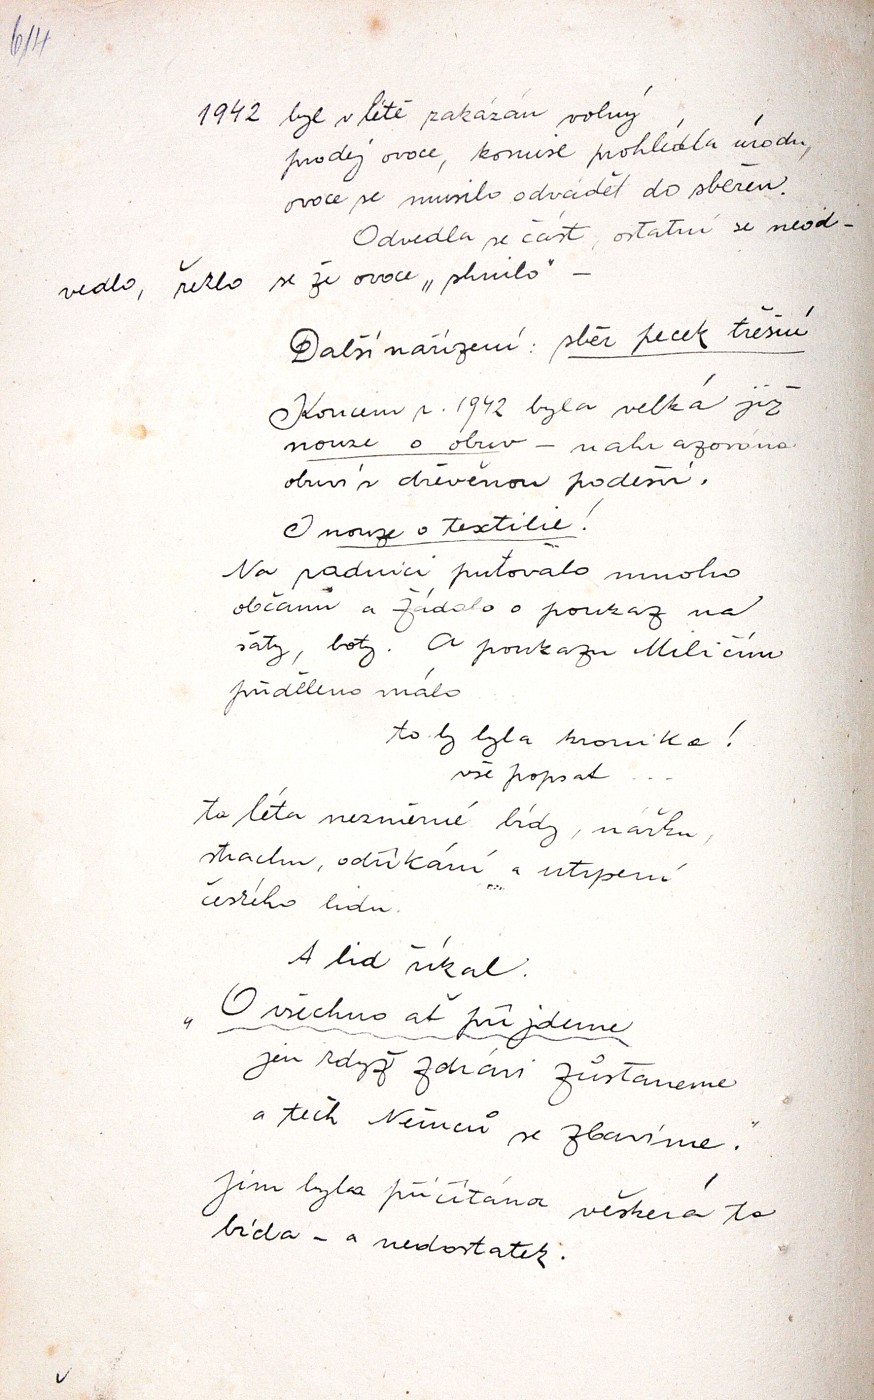 6/4
1942 byl v létě zakázán volný
prodej ovoce, komise prohlédla úrodu,
ovoce se musilo odvádět do sběren.
Odvedla se část, ostatní se neod-
vedlo, řeklo se že ovoce „shnilo" –
Další nařízení: sběr pecek třešní
Koncem r. 1942 byla velká již
nouze o obuv – nahrazována
obuví s dřevěnou podešví.
I nouze o textilie!
Na radnici putovalo mnoho
občanů a žádalo o poukaz na
šaty, boty. A poukazu Miličínu
přiděleno málo
to by byla kronika!
vše popsat ...
ta léta nezměrné bídy, nářku,
strachu, odříkání a utrpení
českého lidu.
A lid říkal.
„O všechno ať přijdeme
jen když zdrávi zůstaneme
a těch Němců se zbavíme."
Jim byla přičítána veškerá ta
bída – a nedostatek.
v